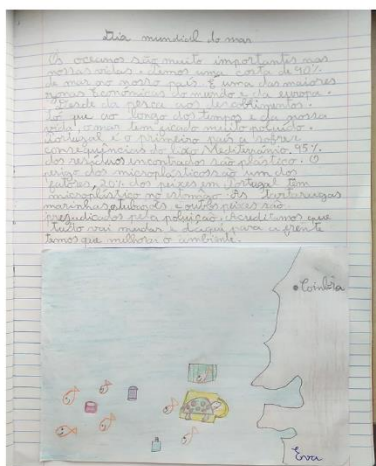 Dia mundial do mar
Os oceanos são muito importantes nas
nossas vidas, temos uma costa de 90%
de mar no nosso país. É uma das maiores
zonas Económicas do mundo e da europa.
Desde da pesca aos descobrimentos.
Só que ao longo dos tempos e da nossa
vida, o mar tem ficado muito poluido.
Portugal é o primeiro país a sofrer
consequências do lixo Mediterrânio. 95%
dos resíduos encontrados são plástico. O
perigo dos microplásticos são um dos
fatores, 20% dos peixes em Portugal tem
microplástico no estomago. As tartarugas
marinhas, e outros peixes são
prejudicados pela poluição. Acreditamos que
tudo vai mudar e daqui para a frente
temos que melhorar o ambiente.
Coimbra
Eva